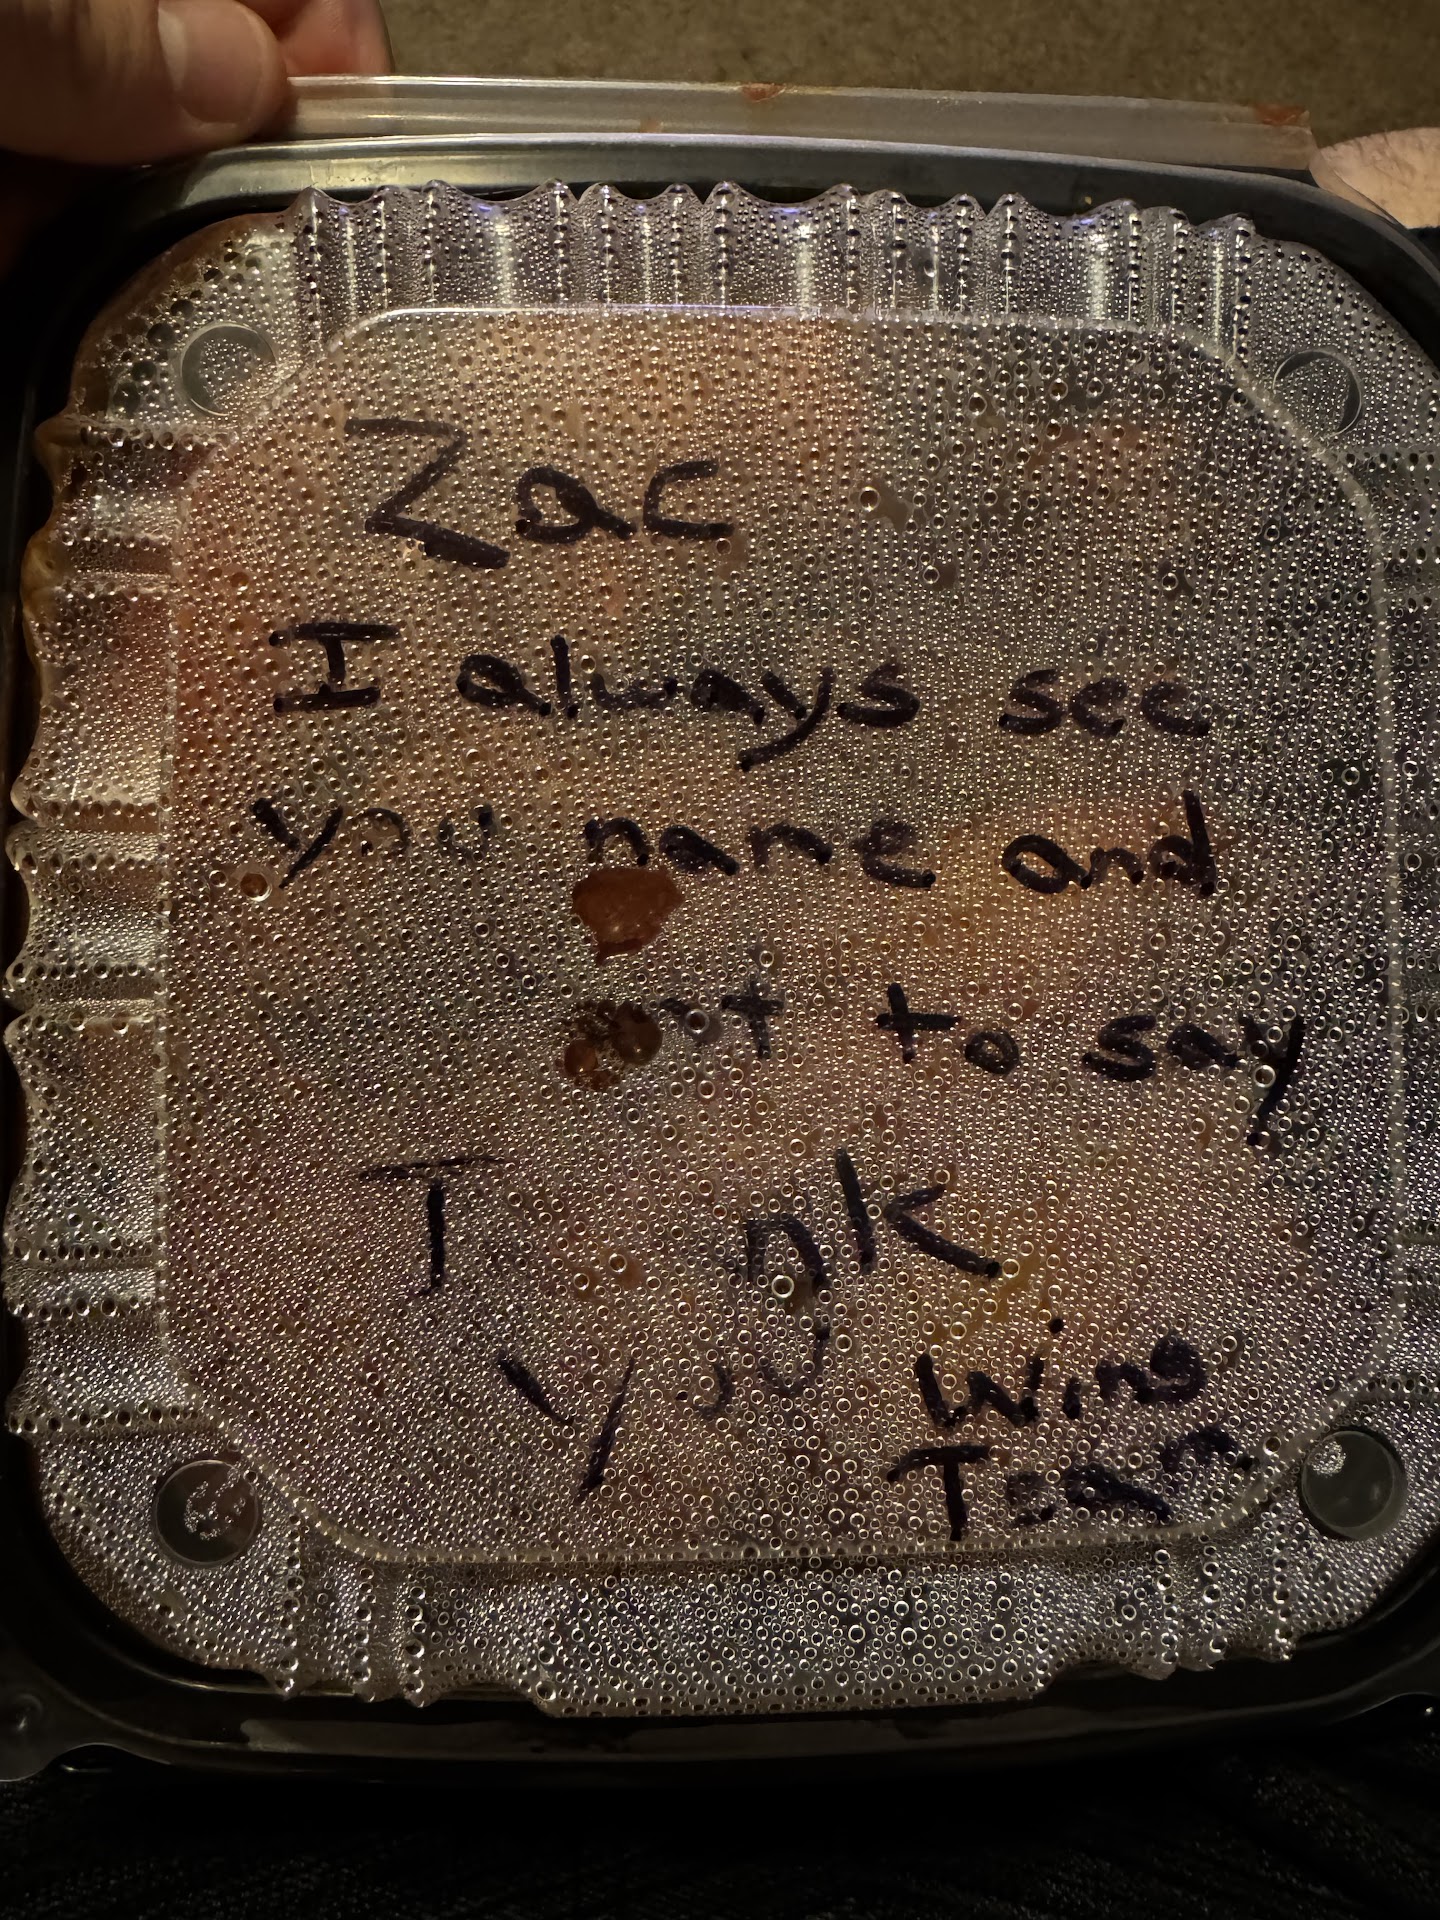 Zac
I always see
you name and
to say
Thank
You Wing
Team